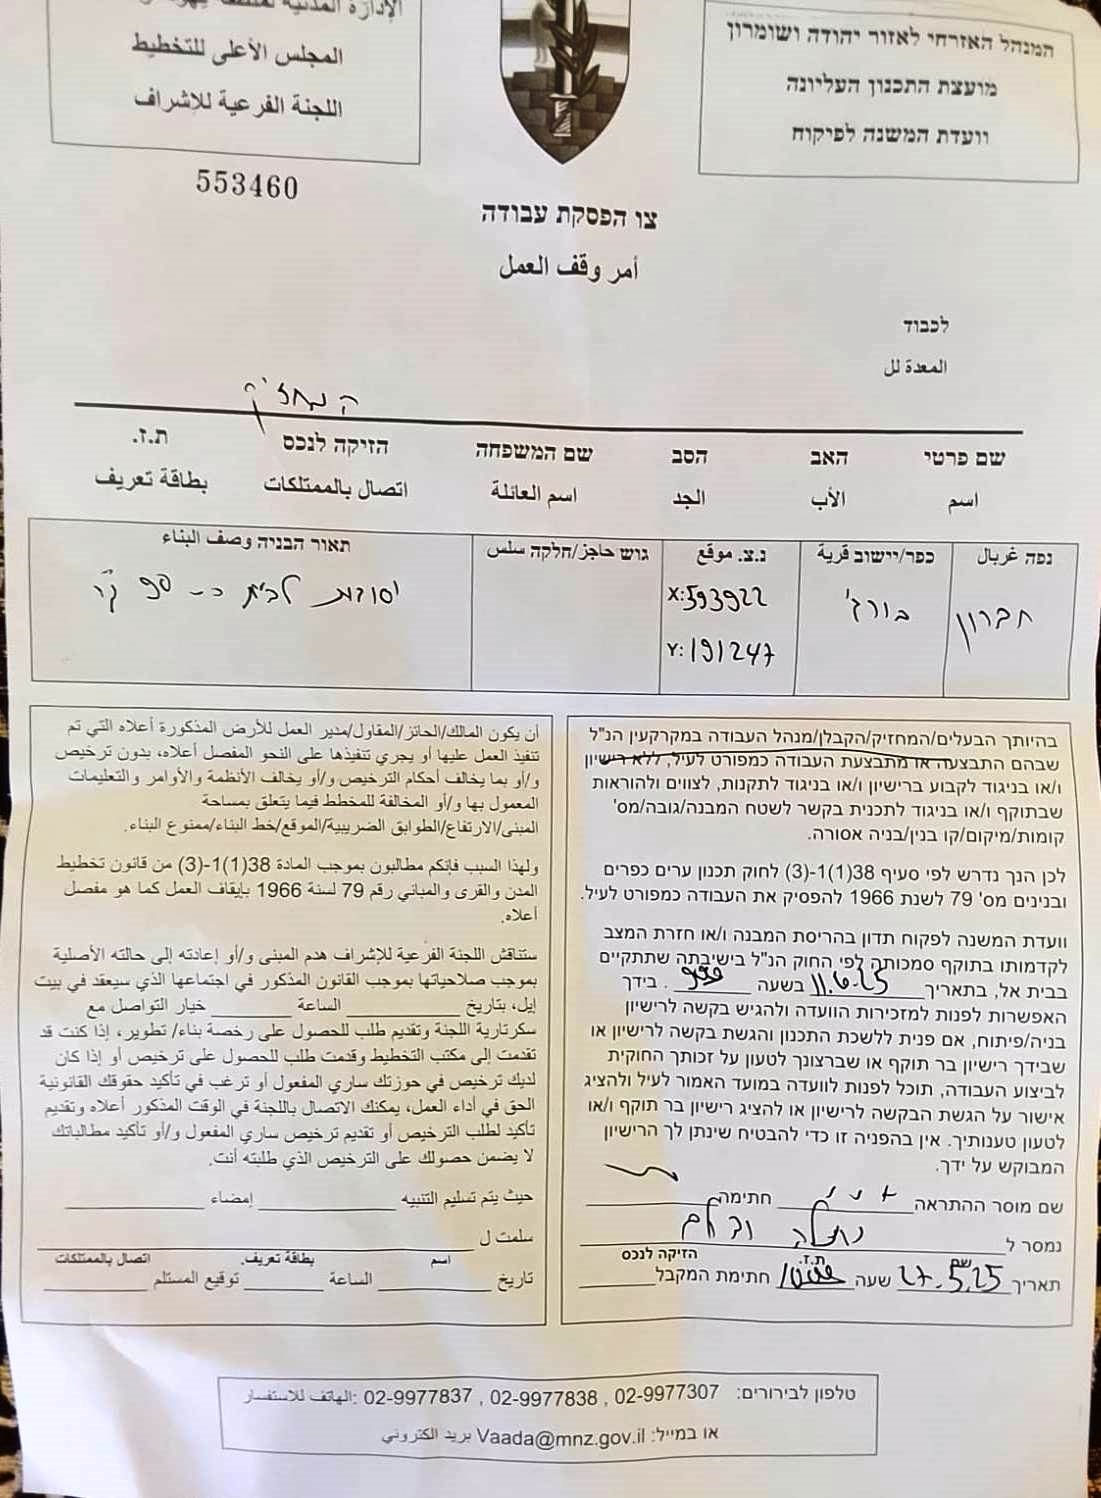 המנהל האזרחי לאזור יהודה ושומרון
מועצת התכנון העליונה
וועדת המשנה לפיקוח
الإدارة المدنية لمنطقة
المجلس الأعلى للتخطيط
اللجنة الفرعية للإشراف
553460
צו הפסקת עבודה
أمر وقف العمل
לכבוד
المعدة لل
המחזיק
שם פרטי האב הסב שם המשפחה הזיקה לנכס ת.ז.
اسم الأب الجد اسم العائلة اتصال بالممتلكات بطاقة تعريف
נפה غربال כפר/יישוב قرية נ.צ. موقع גוש حاجز/חלקה سلس תאור הבניה وصف البناء
חברון בורג' X:593922 יסודות לבית כ- 90 מ"ר
Y:191247
בהיותך הבעלים/המחזיק/הקבלן/מנהל העבודה במקרקעין הנ"ל
שבהם התבצעה או מתבצעת העבודה כמפורט לעיל, ללא רישיון
ו/או בניגוד לקבוע ברישיון ו/או בניגוד לתקנות, לצווים ולהוראות
שבתוקף ו/או בניגוד לתכנית בקשר לשטח המבנה/גובה/מס'
קומות/מיקום/קו בנין/בניה אסורה.
לכן הנך נדרש לפי סעיף 38(1)1-(3) לחוק תכנון ערים כפרים
ובנינים מס' 79 לשנת 1966 להפסיק את העבודה כמפורט לעיל.
וועדת המשנה לפקוח תדון בהריסת המבנה ו/או חזרת המצב
לקדמותו בתוקף סמכותה לפי החוק הנ"ל בישיבתה שתתקיים
בבית אל, בתאריך 11.6.25 בשעה . בידך
האפשרות לפנות למזכירות הוועדה ולהגיש בקשה לרישיון
בניה/פיתוח, אם פנית ללשכת התכנון והגשת בקשה לרישיון או
שבידך רישיון בר תוקף או שברצונך לטעון על זכותך החוקית
לביצוע העבודה, תוכל לפנות לוועדה במועד האמור לעיל ולהציג
אישור על הגשת הבקשה לרישיון או להציג רישיון בר תוקף ו/או
לטעון טענותיך. אין בהפניה זו כדי להבטיח שינתן לך הרישיון
המבוקש על ידך.
שם מוסר ההתראה חתימה
נמסר ל
שם ת.ז. הזיקה לנכס
תאריך 27.5.25 שעה חתימת המקבל
أن يكون المالك/الحائز/المقاول/مدير العمل للأرض المذكورة أعلاه التي تم
تنفيذ العمل عليها أو يجري تنفيذها على النحو المفصل أعلاه، بدون ترخيص
و/أو بما يخالف أحكام الترخيص و/أو يخالف الأنظمة والأوامر والتعليمات
المعمول بها و/أو المخالفة للمخطط فيما يتعلق بمساحة
المبنى/الارتفاع/الطوابق الضريبية/الموقع/خط البناء/ممنوع البناء.
ولهذا السبب فإنكم مطالبون بموجب المادة 38(1)1-(3) من قانون تخطيط
المدن والقرى والمباني رقم 79 لسنة 1966 بإيقاف العمل كما هو مفصل
أعلاه.
ستناقش اللجنة الفرعية للإشراف هدم المبنى و/أو إعادته إلى حالته الأصلية
بموجب صلاحياتها بموجب القانون المذكور في اجتماعها الذي سيعقد في بيت
إيل، بتاريخ الساعة خيار التواصل مع
سكرتارية اللجنة وتقديم طلب للحصول على رخصة بناء/ تطوير، إذا كنت قد
تقدمت إلى مكتب التخطيط وقدمت طلب للحصول على ترخيص أو إذا كان
لديك ترخيص في حوزتك ساري المفعول أو ترغب في تأكيد حقوقك القانونية
الحق في أداء العمل، يمكنك الاتصال باللجنة في الوقت المذكور أعلاه وتقديم
تأكيد لطلب الترخيص أو تقديم ترخيص ساري المفعول و/أو تأكيد مطالباتك
لا يضمن حصولك على الترخيص الذي طلبته أنت.
حيث يتم تسليم التنبيه إمضاء
سلمت ل
اسم بطاقة تعريف. اتصال بالممتلكات
تاريخ الساعة توقيع المستلم
טלפון לבירורים: 02-9977307 , 02-9977838 , 02-9977837 الهاتف للاستفسار:
או במייל: Vaada@mnz.gov.il بريد الكتروني